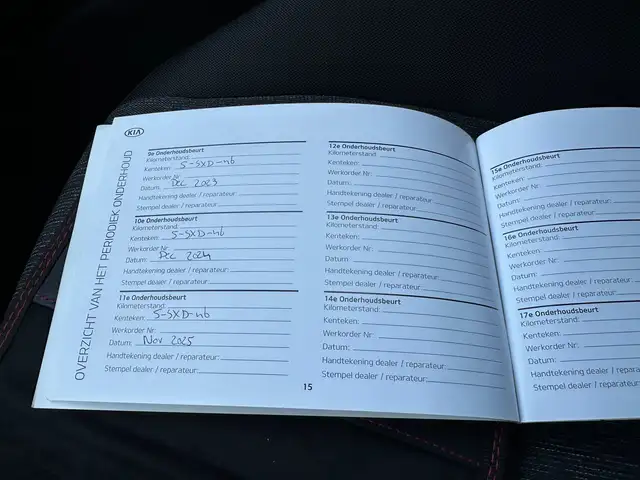 KIA
OVERZICHT VAN HET PERIODIEK ONDERHOUD
9e Onderhoudsbeurt
Kilometerstand:
Kenteken: 5-SXD-46
Werkorder Nr:
Datum: Dec 2023
Handtekening dealer / reparateur:
Stempel dealer / reparateur:
10e Onderhoudsbeurt
Kilometerstand:
Kenteken: 5-SXD-46
Werkorder Nr:
Datum: Dec 2024
Handtekening dealer / reparateur:
Stempel dealer / reparateur:
11e Onderhoudsbeurt
Kilometerstand:
Kenteken: 5-SXD-46
Werkorder Nr:
Datum: Nov 2025
Handtekening dealer / reparateur:
Stempel dealer / reparateur:
12e Onderhoudsbeurt
Kilometerstand:
Kenteken:
Werkorder Nr:
Datum:
Handtekening dealer / reparateur:
Stempel dealer / reparateur:
13e Onderhoudsbeurt
Kilometerstand:
Kenteken:
Werkorder Nr:
Datum:
Handtekening dealer / reparateur:
Stempel dealer / reparateur:
14e Onderhoudsbeurt
Kilometerstand:
Kenteken:
Werkorder Nr:
Datum:
Handtekening dealer / reparateur:
Stempel dealer / reparateur:
15
15e Onderhoudsbeurt
Kilometerstand:
Kenteken:
Werkorder Nr:
Datum:
Handtekening dealer / reparateur:
Stempel dealer / reparateur:
16e Onderhoudsbeurt
Kilometerstand:
Kenteken:
Werkorder Nr:
Datum:
Handtekening dealer / reparateur:
Stempel dealer / reparateur:
17e Onderhoudsbeurt
Kilometerstand:
Kenteken:
Werkorder Nr:
Datum:
Handtekening dealer / repara
Stempel dealer / reparateu